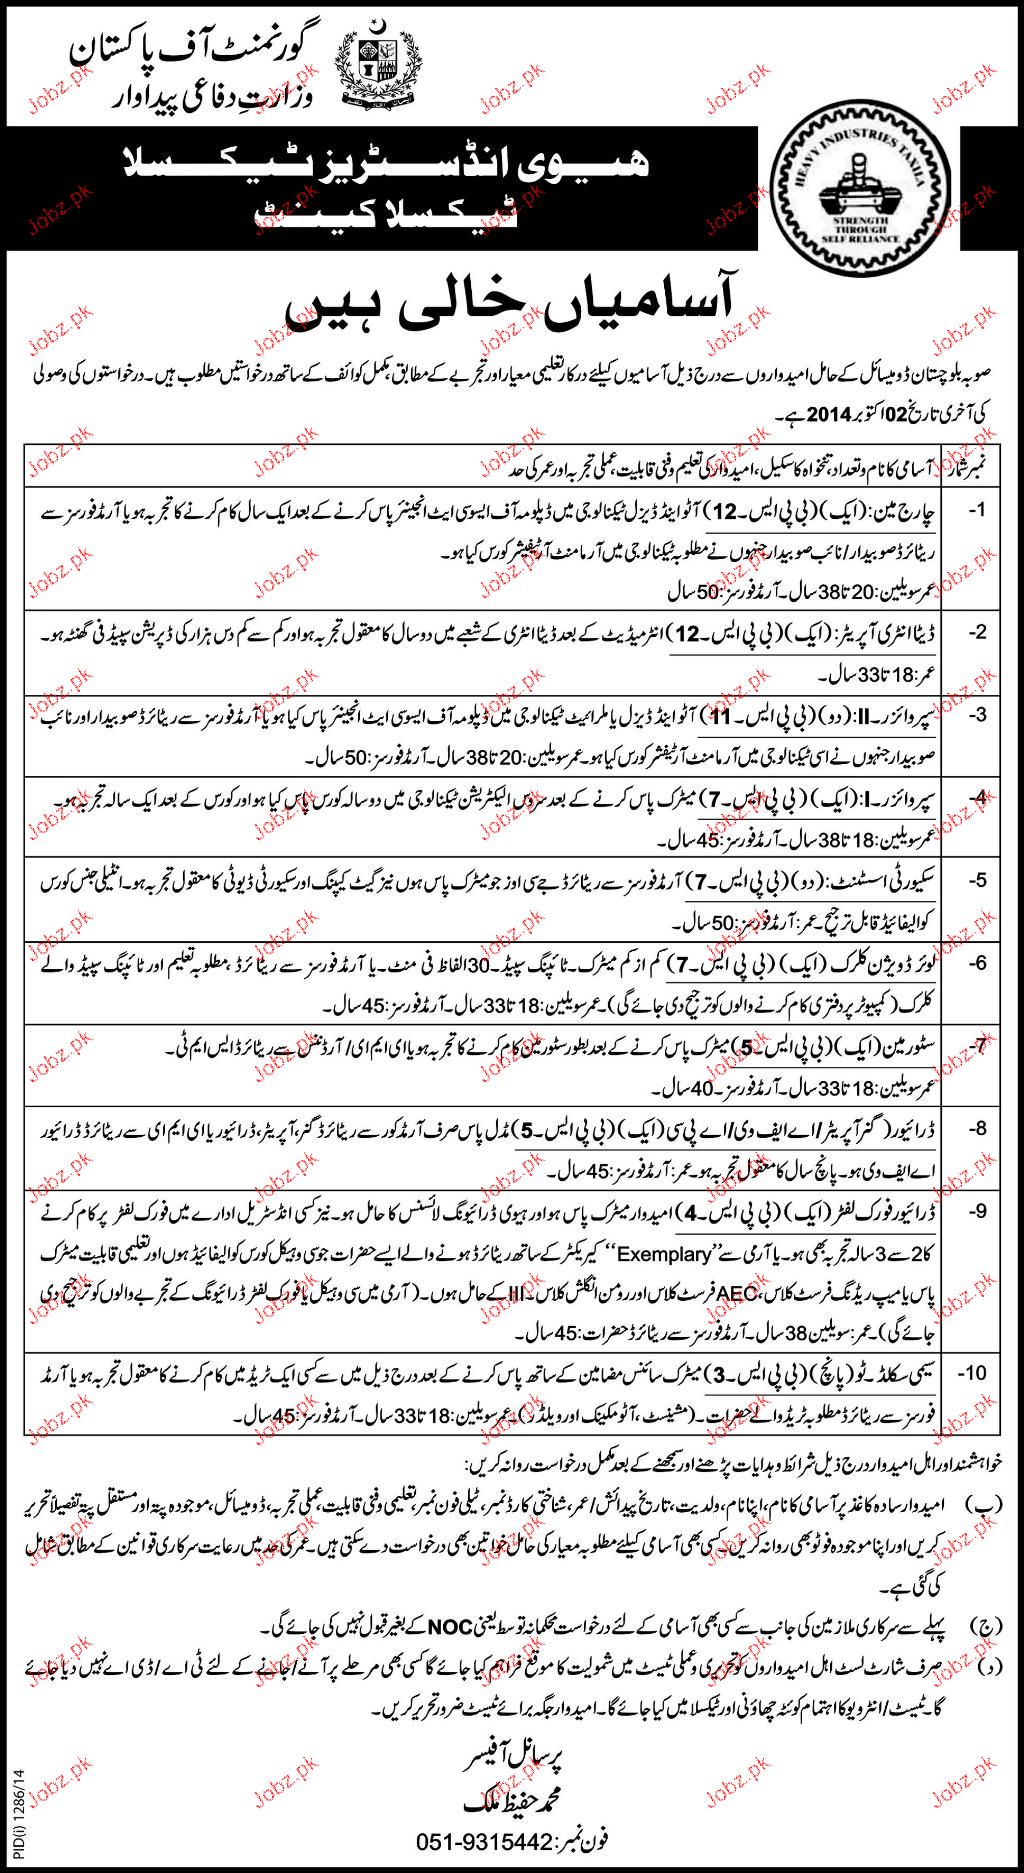 گورنمنٹ آف پاکستان
وزارتِ دفاعی پیداوار
ھیوی انڈسٹریز ٹیکسلا
ٹیکسلا کینٹ
HEAVY INDUSTRIES TAXILA
STRENGTH
THROUGH
SELF RELIANCE
آسامیاں خالی ہیں
صوبہ بلوچستان ڈومیسائل کے حامل امیدواروں سے درج ذیل آسامیوں کیلئے درکار تعلیمی معیار اور تجربے کے مطابق، مکمل کوائف کے ساتھ درخواستیں مطلوب ہیں۔ درخواستوں کی وصولی
کی آخری تاریخ 02 اکتوبر 2014 ہے۔
نمبر شمار آسامی کا نام و تعداد، تنخواہ کا سکیل، امیدوار کی تعلیم و فنی قابلیت، عملی تجربہ اور عمر کی حد
1- چارج مین: (ایک) (بی پی ایس۔12) آٹو اینڈ ڈیزل ٹیکنالوجی میں ڈپلومہ آف ایسوسی ایٹ انجینئر پاس کرنے کے بعد ایک سال کام کرنے کا تجربہ ہو یا آرمڈ فورسز سے
ریٹائرڈ صوبیدار/نائب صوبیدار جنہوں نے مطلوبہ ٹیکنالوجی میں آرمامنٹ آرٹیفیشر کورس کیا ہو۔
عمر سویلین: 20 تا 38 سال۔ آرمڈ فورسز: 50 سال
2- ڈیٹا انٹری آپریٹر: (ایک) (بی پی ایس۔12) انٹرمیڈیٹ کے بعد ڈیٹا انٹری کے شعبے میں دو سال کا معقول تجربہ ہو اور کم سے کم دس ہزار کی ڈپریشن سپیڈ فی گھنٹہ ہو۔
عمر: 18 تا 33 سال۔
3- سپروائزر۔II: (دو) (بی پی ایس۔11) آٹو اینڈ ڈیزل یا ملرائیٹ ٹیکنالوجی میں ڈپلومہ آف ایسوسی ایٹ انجینئر پاس کیا ہو یا آرمڈ فورسز سے ریٹائرڈ صوبیدار اور نائب
صوبیدار جنہوں نے اسی ٹیکنالوجی میں آرمامنٹ آرٹیفشر کورس کیا ہو۔ عمر سویلین: 20 تا 38 سال۔ آرمڈ فورسز: 50 سال۔
4- سپروائزر۔I: (ایک) (بی پی ایس۔7) میٹرک پاس کرنے کے بعد سروس الیکٹریشن ٹیکنالوجی میں دو سالہ کورس پاس کیا ہو اور کورس کے بعد ایک سالہ تجربہ ہو۔
عمر سویلین: 18 تا 38 سال۔ آرمڈ فورسز: 45 سال۔
5- سکیورٹی اسسٹنٹ: (دو) (بی پی ایس۔7) آرمڈ فورسز سے ریٹائرڈ جے سی اوز جو میٹرک پاس ہوں نیز گیٹ کیپنگ اور سکیورٹی ڈیوٹی کا معقول تجربہ ہو۔ انٹیلی جنس کورس
کوالیفائیڈ قابل ترجیح۔ عمر: آرمڈ فورسز: 50 سال۔
6- لوئر ڈویژن کلرک (ایک) (بی پی ایس۔7) کم از کم میٹرک۔ ٹائپنگ سپیڈ۔ 30 الفاظ فی منٹ۔ یا آرمڈ فورسز سے ریٹائرڈ، مطلوبہ تعلیم اور ٹائپنگ سپیڈ والے
کلرک (کمپیوٹر پر دفتری کام کرنے والوں کو ترجیح دی جائے گی)۔ عمر سویلین: 18 تا 33 سال۔ آرمڈ فورسز: 45 سال۔
7- سٹور مین (ایک) (بی پی ایس۔5) میٹرک پاس کرنے کے بعد بطور سٹور مین کام کرنے کا تجربہ ہو یا ای ایم ای/آرڈننس سے ریٹائرڈ ایس ایم ٹی۔
عمر سویلین: 18 تا 33 سال۔ آرمڈ فورسز۔ 40 سال۔
8- ڈرائیور (گنر آپریٹر/اے ایف وی/اے پی سی (ایک) (بی پی ایس۔5) مڈل پاس صرف آرمڈ کور سے ریٹائرڈ گنر، آپریٹر، ڈرائیور یا ای ایم ای سے ریٹائرڈ ڈرائیور
اے ایف وی ہو۔ پانچ سال کا معقول تجربہ ہو۔ عمر: آرمڈ فورسز: 45 سال۔
9- ڈرائیور فورک لفٹر (ایک) (بی پی ایس۔4) امیدوار میٹرک پاس ہو اور ہیوی ڈرائیونگ لائسنس کا حامل ہو۔ نیز کسی انڈسٹریل ادارے میں فورک لفٹر پر کام کرنے
کا 2 سے 3 سالہ تجربہ بھی ہو۔ یا آرمی سے "Exemplary" کیریکٹر کے ساتھ ریٹائرڈ ہونے والے ایسے حضرات جو سی وہیکل کورس کوالیفائیڈ ہوں اور تعلیمی قابلیت میٹرک
پاس یا میپ ریڈنگ فرسٹ کلاس، AEC فرسٹ کلاس اور رومن انگلش کلاس۔ III کے حامل ہوں۔ (آرمی میں سی وہیکل یا فورک لفٹر ڈرائیونگ کے تجربے والوں کو ترجیح دی
جائے گی)۔ عمر: سویلین 38 سال۔ آرمڈ فورسز سے ریٹائرڈ حضرات: 45 سال۔
10- سیمی سکلڈ۔ ٹو (پانچ) (بی پی ایس۔3) میٹرک سائنس مضامین کے ساتھ پاس کرنے کے بعد درج ذیل میں سے کسی ایک ٹریڈ میں کام کرنے کا معقول تجربہ ہو یا آرمڈ
فورسز سے ریٹائرڈ مطلوبہ ٹریڈ والے حضرات۔ (مشینسٹ، آٹو مکینک اور ویلڈر)۔ عمر سویلین: 18 تا 33 سال۔ آرمڈ فورسز: 45 سال۔
خواہشمند اور اہل امیدوار درج ذیل شرائط و ہدایات پڑھنے اور سمجھنے کے بعد مکمل درخواست روانہ کریں:
(ب) امیدوار سادہ کاغذ پر آسامی کا نام، اپنا نام، ولدیت، تاریخ پیدائش/عمر، شناختی کارڈ نمبر، ٹیلی فون نمبر، تعلیمی و فنی قابلیت، عملی تجربہ، ڈومیسائل، موجودہ پتہ اور مستقل پتہ تفصیلاً تحریر
کریں اور اپنا موجودہ فوٹو بھی روانہ کریں۔ کسی بھی آسامی کیلئے مطلوبہ معیار کی حامل خواتین بھی درخواست دے سکتی ہیں۔ عمر کی حد میں رعایت سرکاری قوانین کے مطابق شامل
کی گئی ہے۔
(ج) پہلے سے سرکاری ملازمین کی جانب سے کسی بھی آسامی کے لئے درخواست محکمانہ توسط یعنی NOC کے بغیر قبول نہیں کی جائے گی۔
(د) صرف شارٹ لسٹ اہل امیدواروں کو تحریری و عملی ٹیسٹ میں شمولیت کا موقع فراہم کیا جائے گا کسی بھی مرحلے پر آنے/جانے کے لئے ٹی اے/ڈی اے نہیں دیا جائے
گا۔ ٹیسٹ/انٹرویو کا اہتمام کوئٹہ چھاؤنی اور ٹیکسلا میں کیا جائے گا۔ امیدوار جگہ برائے ٹیسٹ ضرور تحریر کریں۔
پرسانل آفیسر
محمد حفیظ ملک
فون نمبر: 051-9315442
PID(i) 1286/14
Jobz.pk